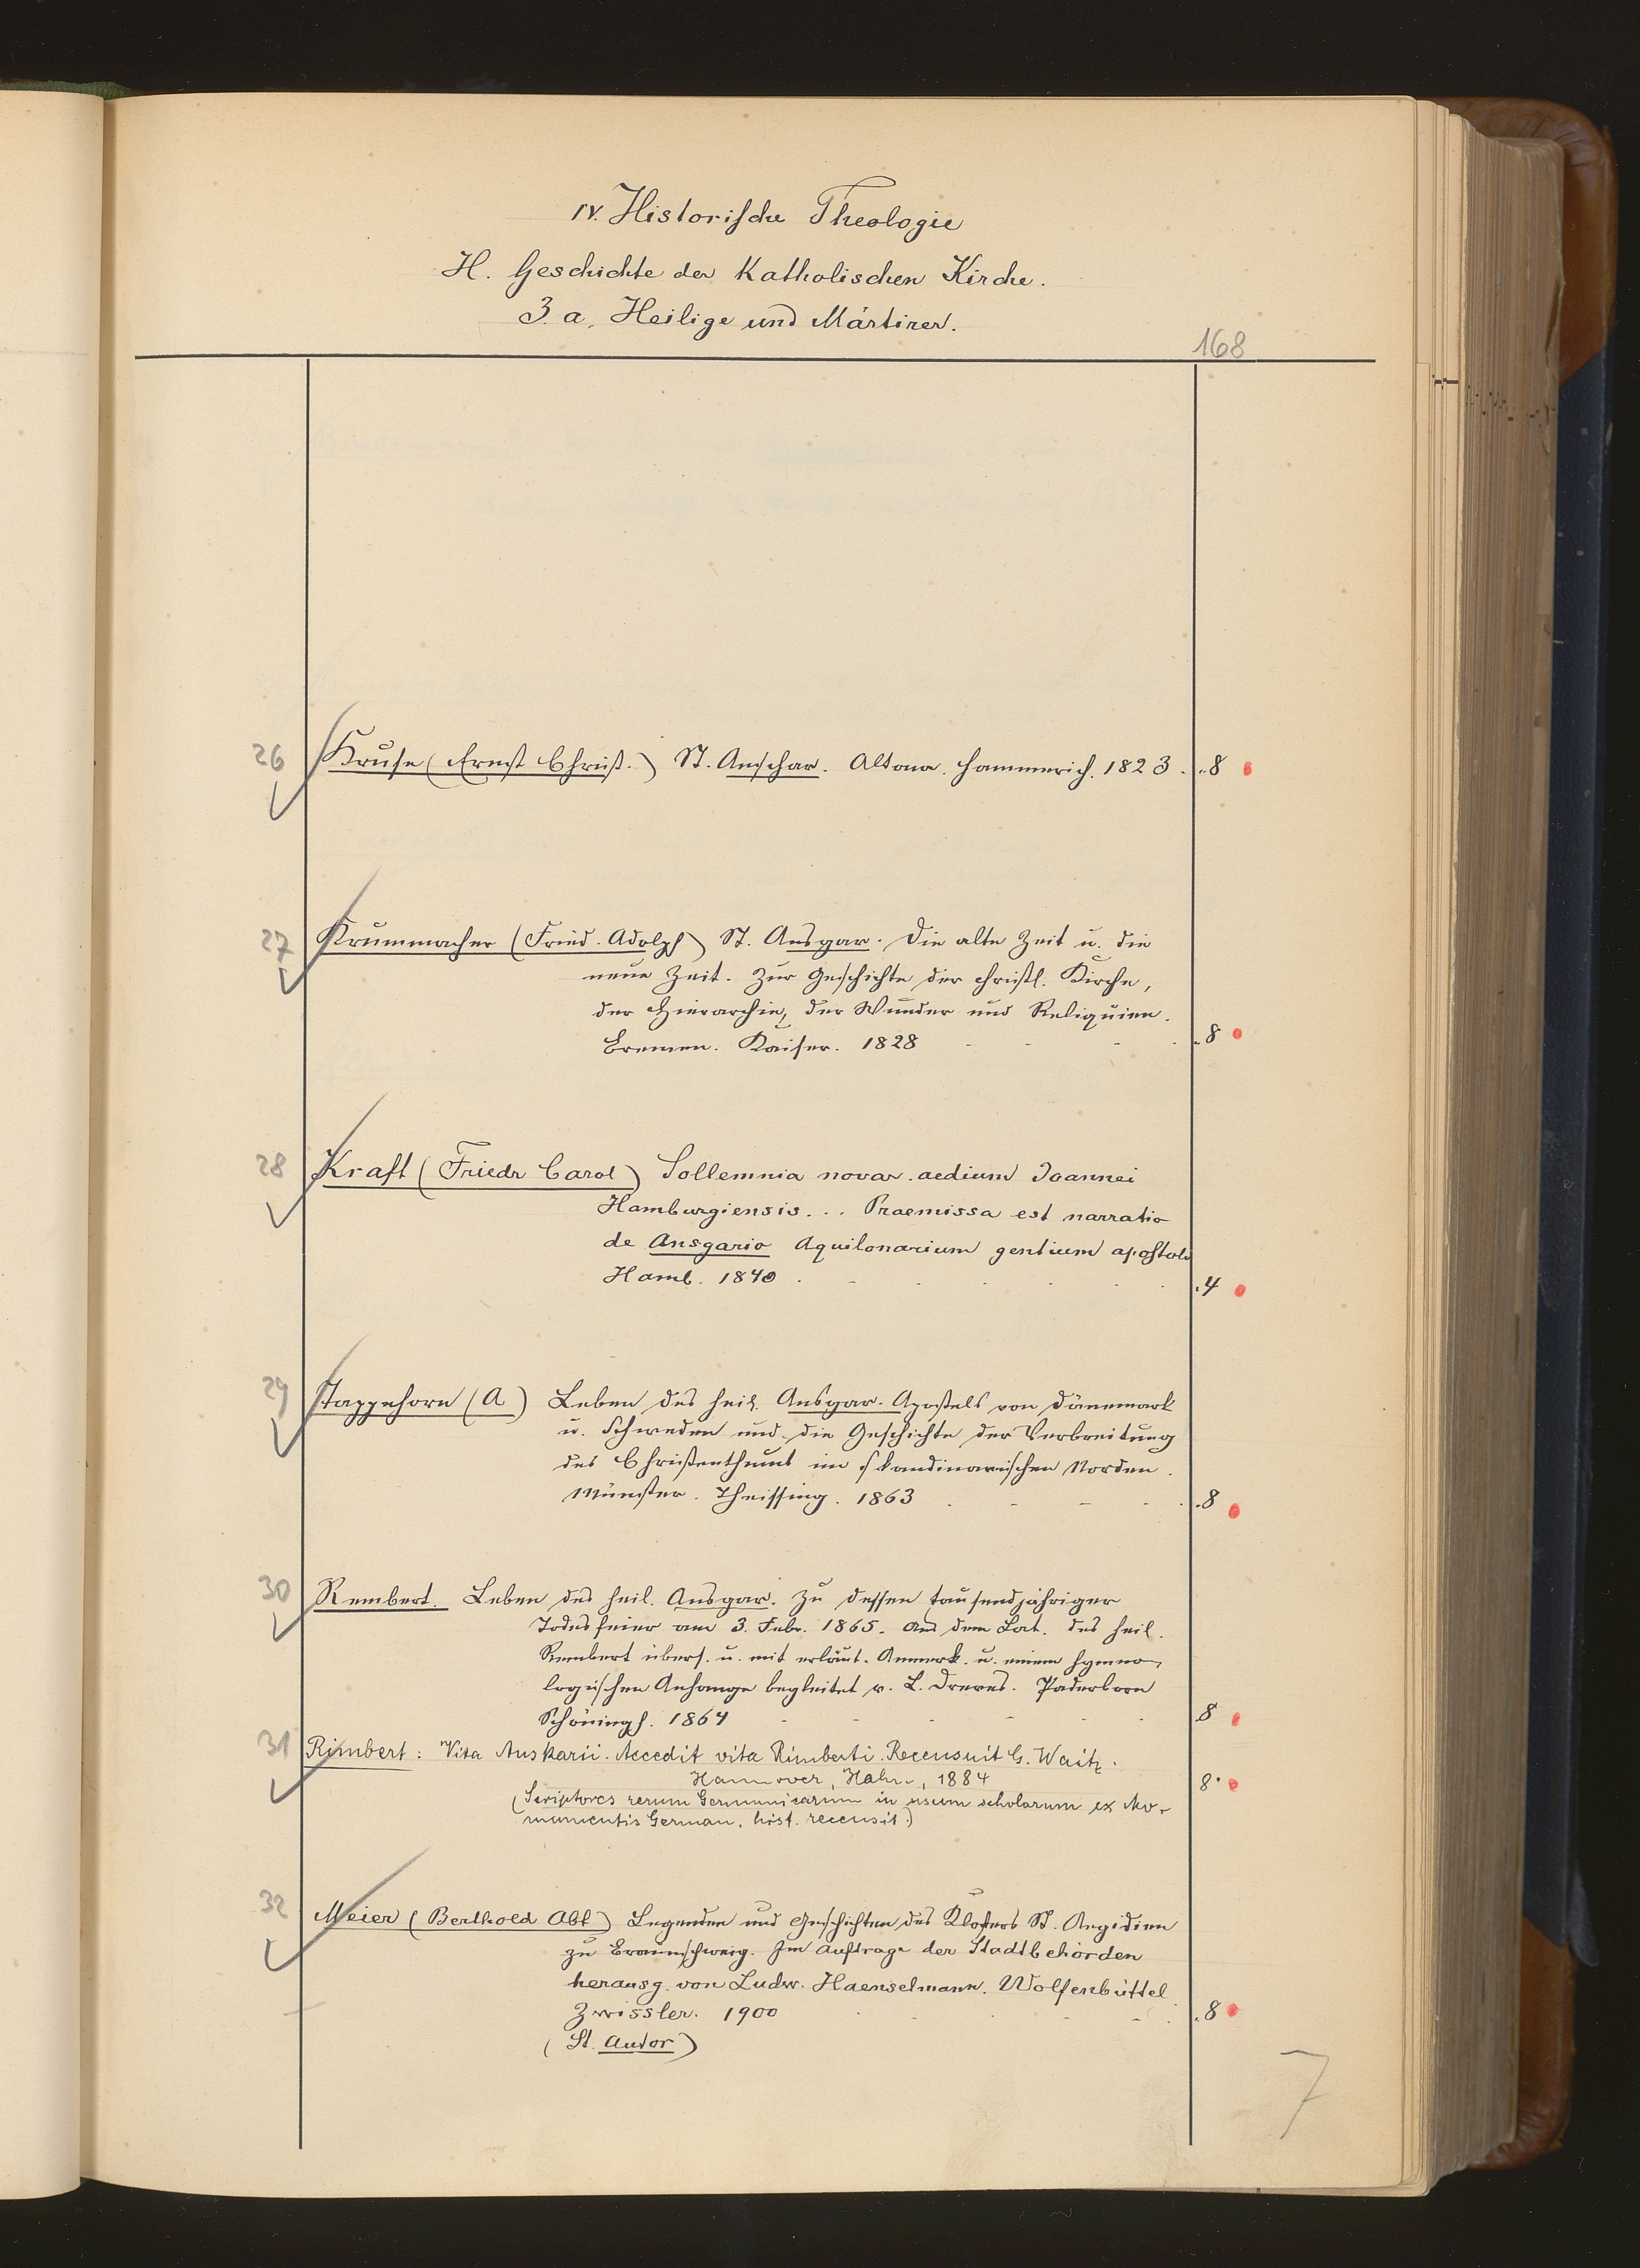 IV. Historische Theologie
H. Geschichte der Katholischen Kirche.
3. a. Heilige und Märtirer.
168
26 Kruse (Ernst Christ.) St. Anschar. Altona. Hammerich. 1823. 8
27 Krummacher (Fried. Adolph) St. Ansgar. Die alte Zeit u. die
neue Zeit. Zur Geschichte der christl. Kirche,
der Hierarchie, der Wunder und Reliquien.
Bremen. Kaiser. 1828 8
28 Kraft (Friedr Carol) Sollemnia novar. aedium Joannei
Hamburgiensis... Praemissa est narratio
de Ansgario Aquilonarium gentium apostolo
Hamb. 1840 4
29 Tappehorn (A) Leben des heil. Ansgar. Apostels von Dänemark
u. Schweden und die Geschichte der Verbreitung
des Christenthums im skandinavischen Norden.
Münster. Theissing. 1863 8
30 Rembert. Leben des heil. Ansgar. Zu dessen tausendjähriger
Todesfeier am 3. Febr. 1865. Aus dem Lat. des heil.
Rembert übers. u. mit erläut. Anmerk. u. einem hymno-
logischen Anhange begleitet v. L. Dreves. Paderborn
Schöningh. 1864 8
31 Rimbert: Vita Anskarii. Accedit vita Rimberti. Recensuit G. Waitz.
Hannover, Hahn, 1884 8°
(Scriptores rerum Germanicarum in usum scholarum ex Mo-
numentis German. hist. recensit.)
32 Meier (Berthold Abt) Legenden und Geschichten des Klosters St. Aegidien
zu Braunschweig. Im Auftrage der Stadtbehörden
herausg. von Ludw. Haenselmann. Wolfenbüttel
Zwissler. 1900 8
(St. Autor)
7